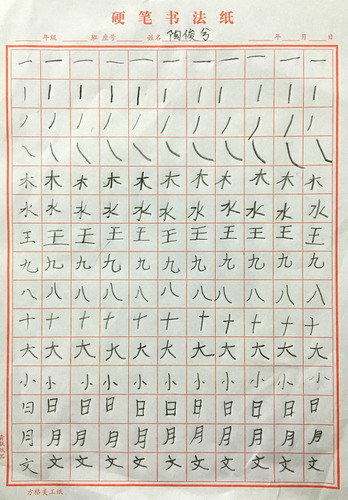 硬笔书法纸
年级 班 座号 姓名 陶俊兮 年 月 日
一 一 一 一 一 一 一 一 一 一 一
丨 丨 丨 丨 丨 丨 丨 丨 丨 丨 丨
丿 丿 丿 丿 丿 丿 丿 丿 丿 丿 丿
㇏ ㇏ ㇏ ㇏ ㇏ ㇏ ㇏ ㇏ ㇏ ㇏ ㇏
木 木 木 木 木 木 木 木 木 木 木
水 水 水 水 水 水 水 水 水 水 水
王 王 王 王 王 王 王 王 王 王 王
九 九 九 九 九 九 九 九 九 九 九
八 八 八 八 八 八 八 八 八 八 八
十 十 十 十 十 十 十 十 十 十 十
大 大 大 大 大 大 大 大 大 大 大
小 小 小 小 小 小 小 小 小 小
日 日 日 日 日 日 日 日 日 日 日
月 月 月 月 月 月 月 月 月 月 月
文 文 文 文 文 文 文 文 文 文 文
方格美工纸